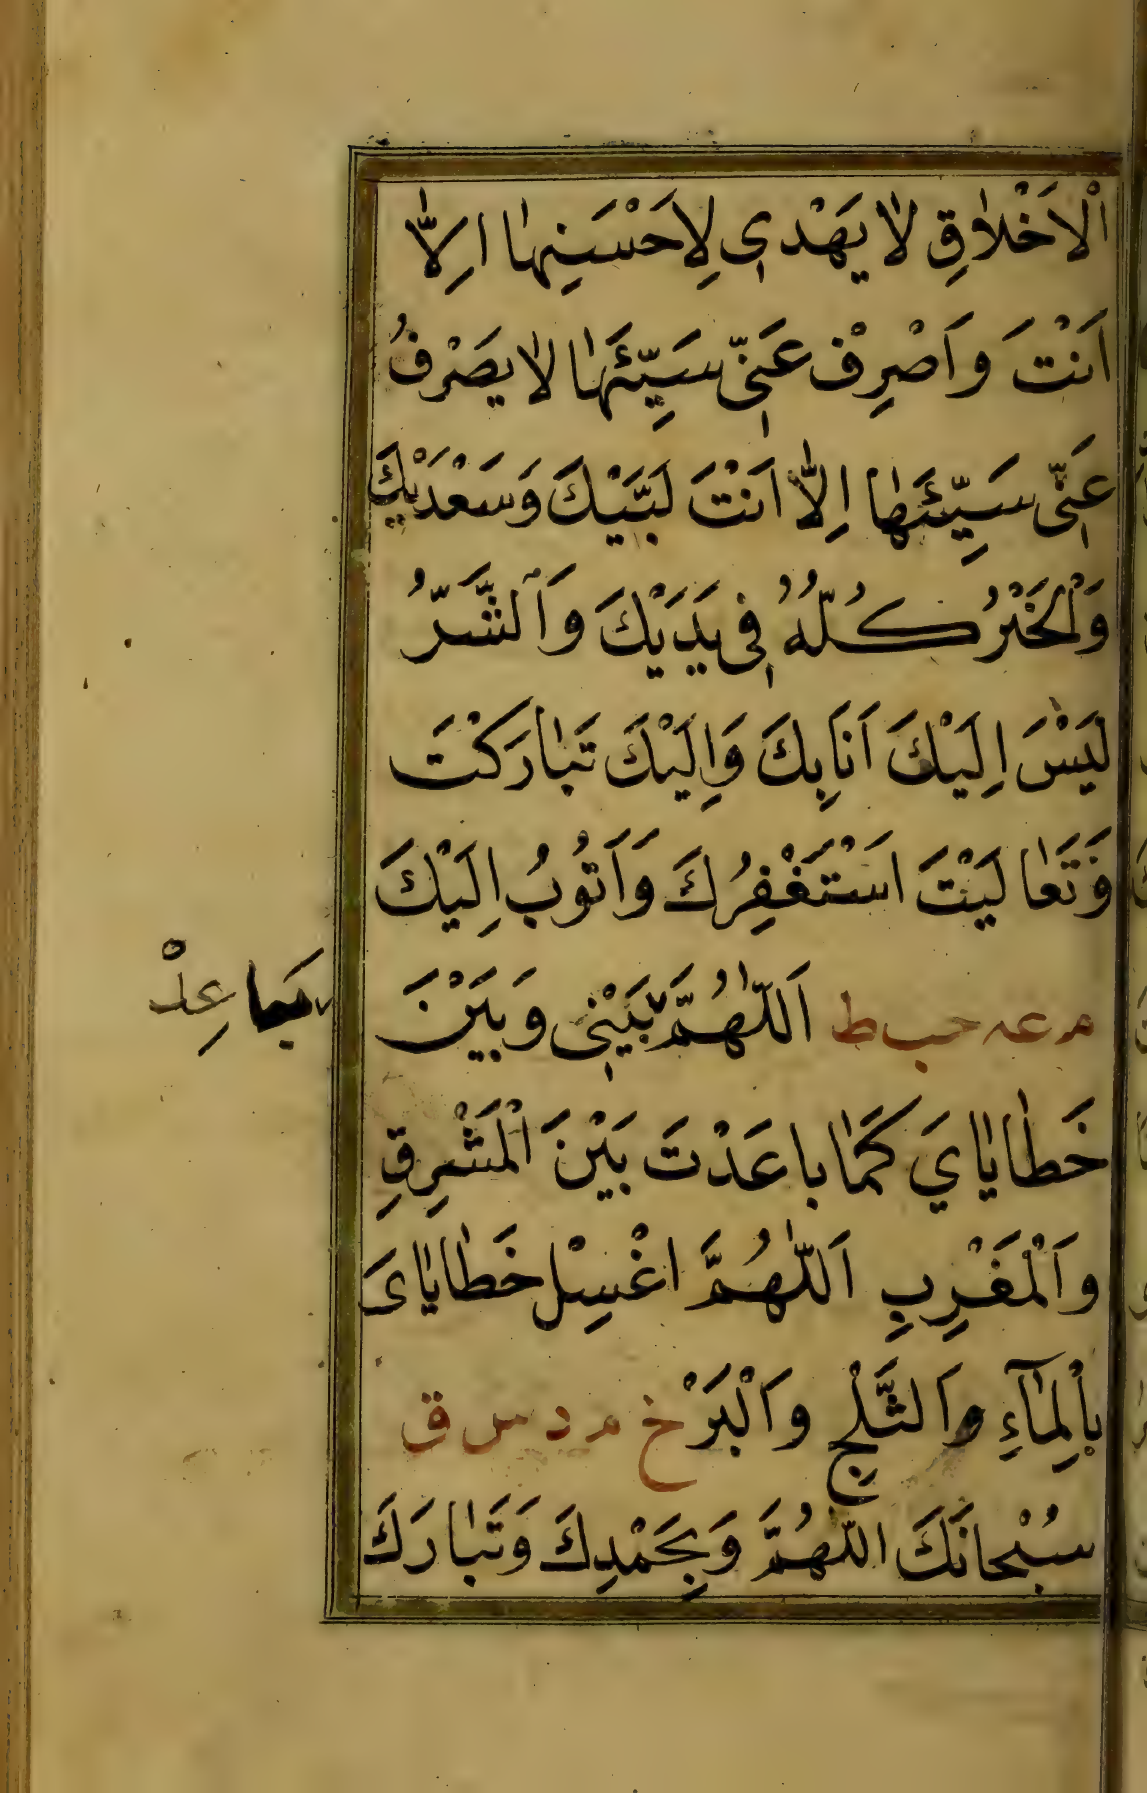 الْاَخْلَاقِ لَا يَهْدِي لِاَحْسَنِهَا اِلَّا
اَنْتَ وَاَصْرِفْ عَنِّي سَيِّئَهَا لَا يَصْرِفُ
عَنِّي سَيِّئَهَا اِلَّا اَنْتَ لَبَّيْكَ وَسَعْدَيْكَ
وَلْخَيْرُ كُلُّهُ فِي يَدَيْكَ وَاَلشَّرُّ
لَيْسَ اِلَيْكَ اَنَا بِكَ وَاِلَيْكَ تَبَارَكْتَ
وَتَعَالَيْتَ اَسْتَغْفِرُكَ وَاَتُوبُ اِلَيْكَ
م عه حب ط اَللّٰهُمَّ بَيْنِي وَبَيْنَ
بَاعِدْ
خَطَايَايَ كَمَا بَاعَدْتَ بَيْنَ الْمَشْرِقِ
وَاَلْمَغْرِبِ اَللّٰهُمَّ اغْسِلْ خَطَايَايَ
بِاْلمَآءِ وَاَلثَّلْجِ وَاَلْبَرْ خ م د س ق
سُبْحَانَكَ اللّٰهُمَّ وَبِحَمْدِكَ وَتَبَارَكَ